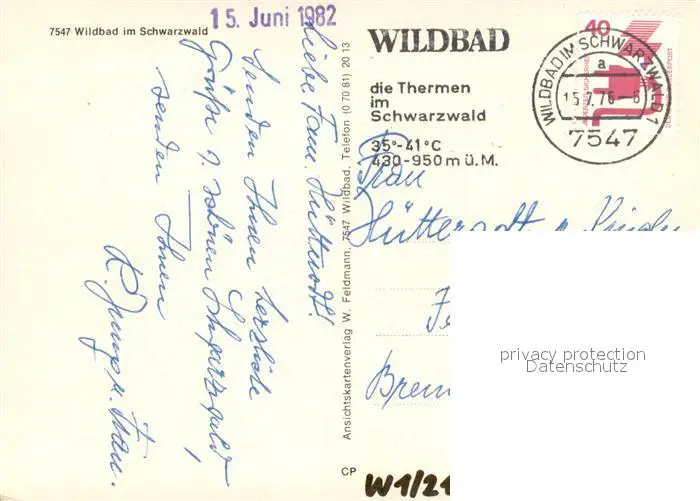 7547 Wildbad im Schwarzwald
15. Juni 1982
Liebe Fam. Hütterott!
Senden Ihnen herzliche
Grüße v. schönen Schwarzwald
senden Ihnen
R. Jung u. Frau.
Ansichtskartenverlag W. Feldmann, 7547 Wildbad, Telefon (0 70 81) 20 13
CP
WILDBAD
die Thermen
im
Schwarzwald
35°-41°C
430-950m ü.M.
40
WILDBAD IM SCHWARZWALD 1
a
15.7.76-6
7547
Frau
Hütterott
Brem
privacy protection
Datenschutz
W1/21